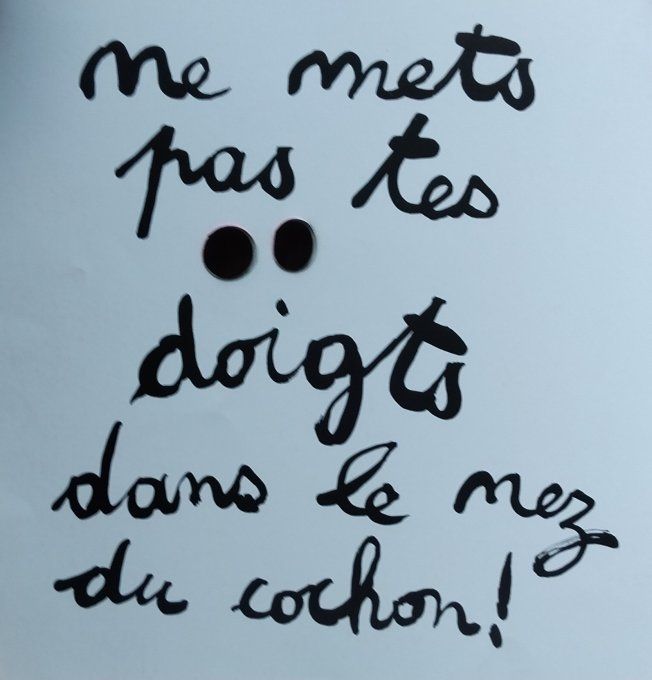 ne mets
pas tes
doigts
dans le nez
du cochon!